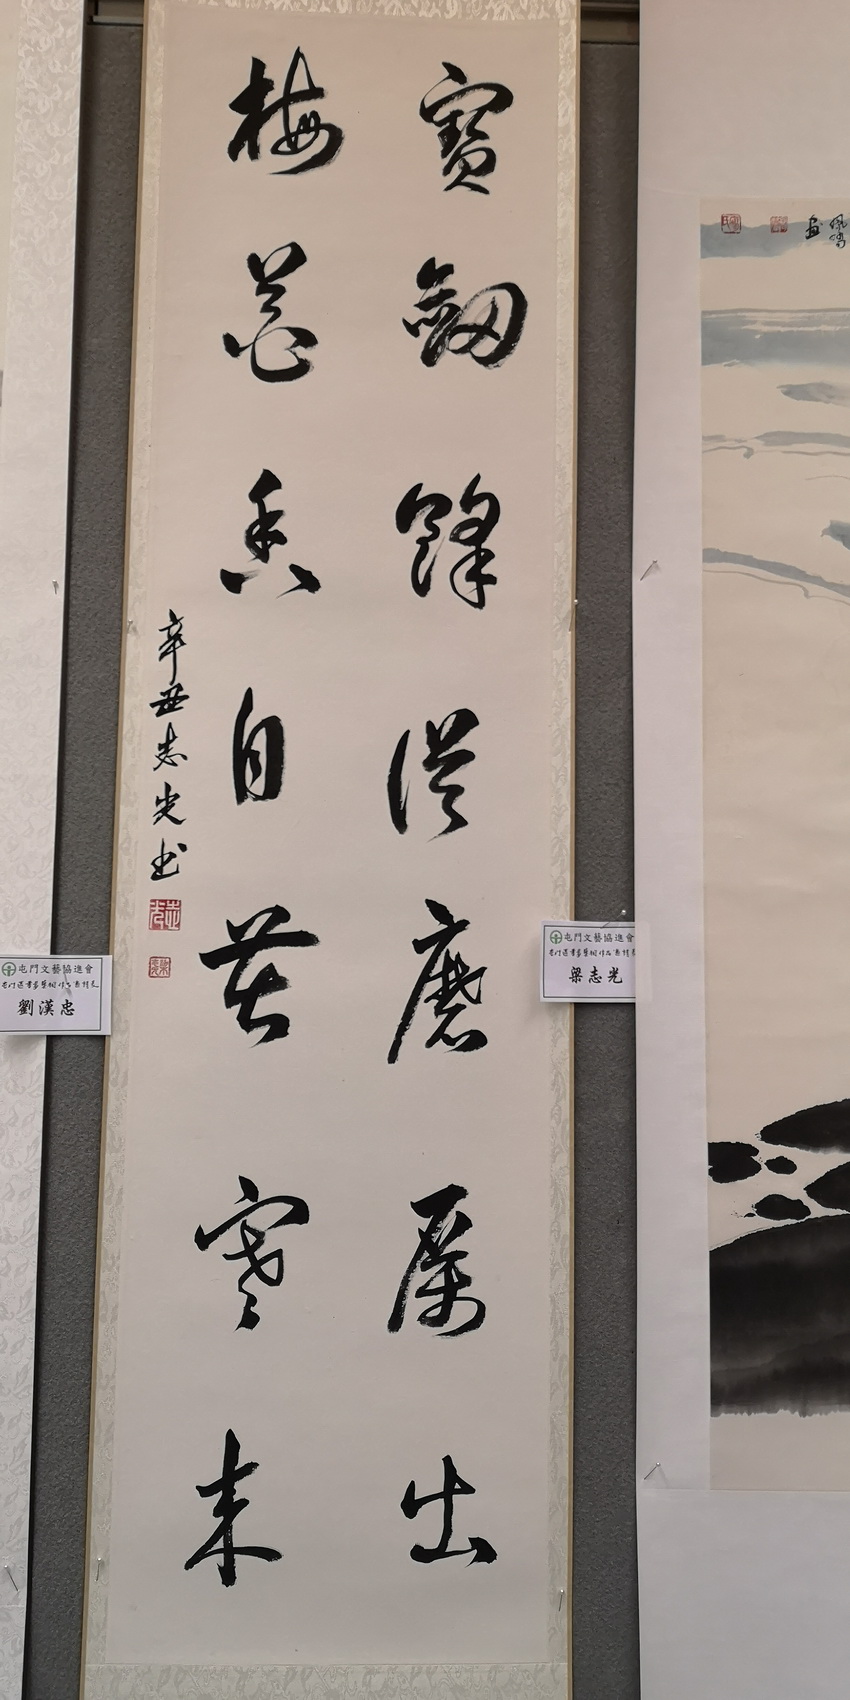 寶劔鋒從磨厲出
梅蕊香自苦寒來
辛丑志光书
屯門文藝協進會
梁志光
屯門文藝協進會
劉漢忠